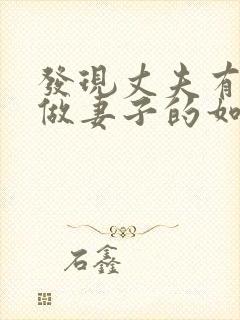 發現丈夫有
做妻子的如
石鑫